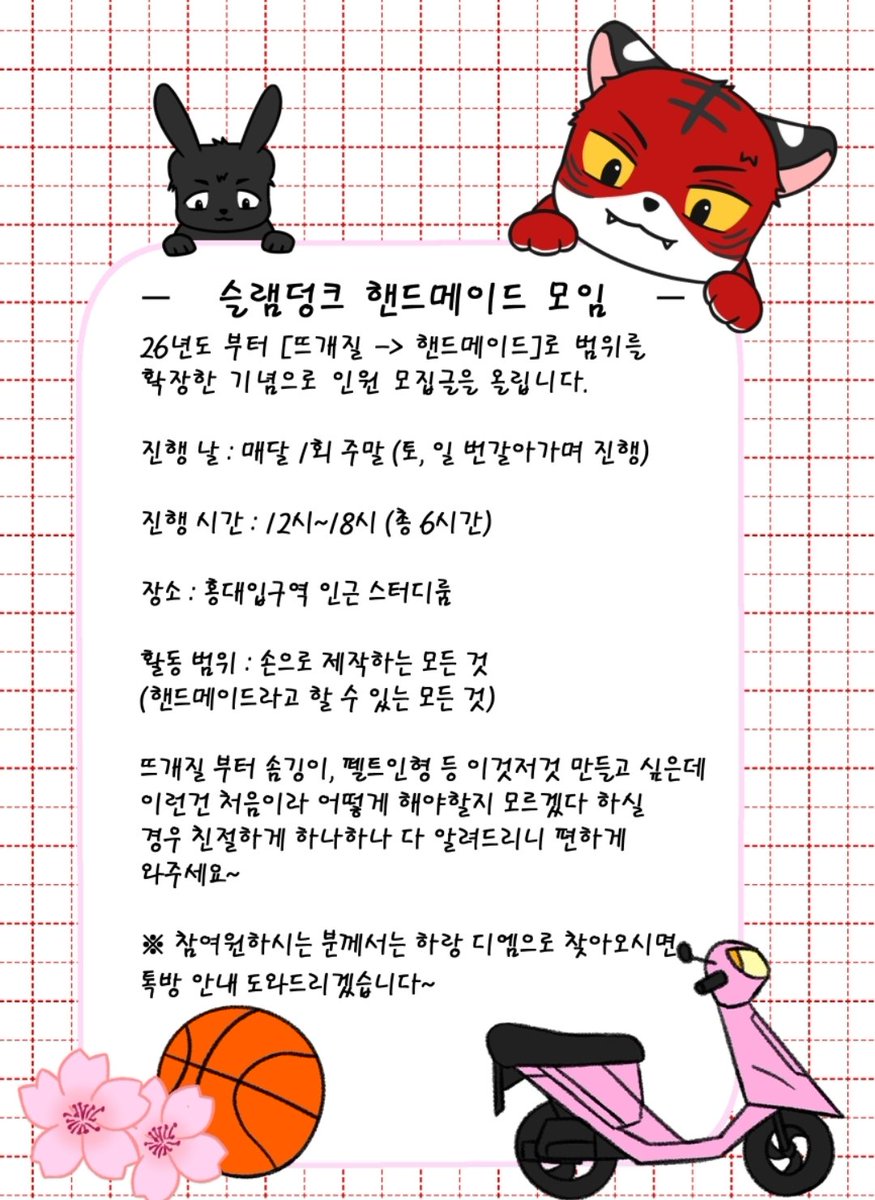 — 슬램덩크 핸드메이드 모임 —
26년도 부터 [뜨개질 -> 핸드메이드]로 범위를
확장한 기념으로 인원 모집글을 올립니다.
진행 날 : 매달 1회 주말 (토, 일 번갈아가며 진행)
진행 시간 : 12시~18시 (총 6시간)
장소 : 홍대입구역 인근 스터디룸
활동 범위 : 손으로 제작하는 모든 것
(핸드메이드라고 할 수 있는 모든 것)
뜨개질 부터 솜깅이, 펠트인형 등 이것저것 만들고 싶은데
이런건 처음이라 어떻게 해야할지 모르겠다 하실
경우 친절하게 하나하나 다 알려드리니 편하게
와주세요~
※ 참여원하시는 분께서는 하랑 디엠으로 찾아오시면
톡방 안내 도와드리겠습니다~